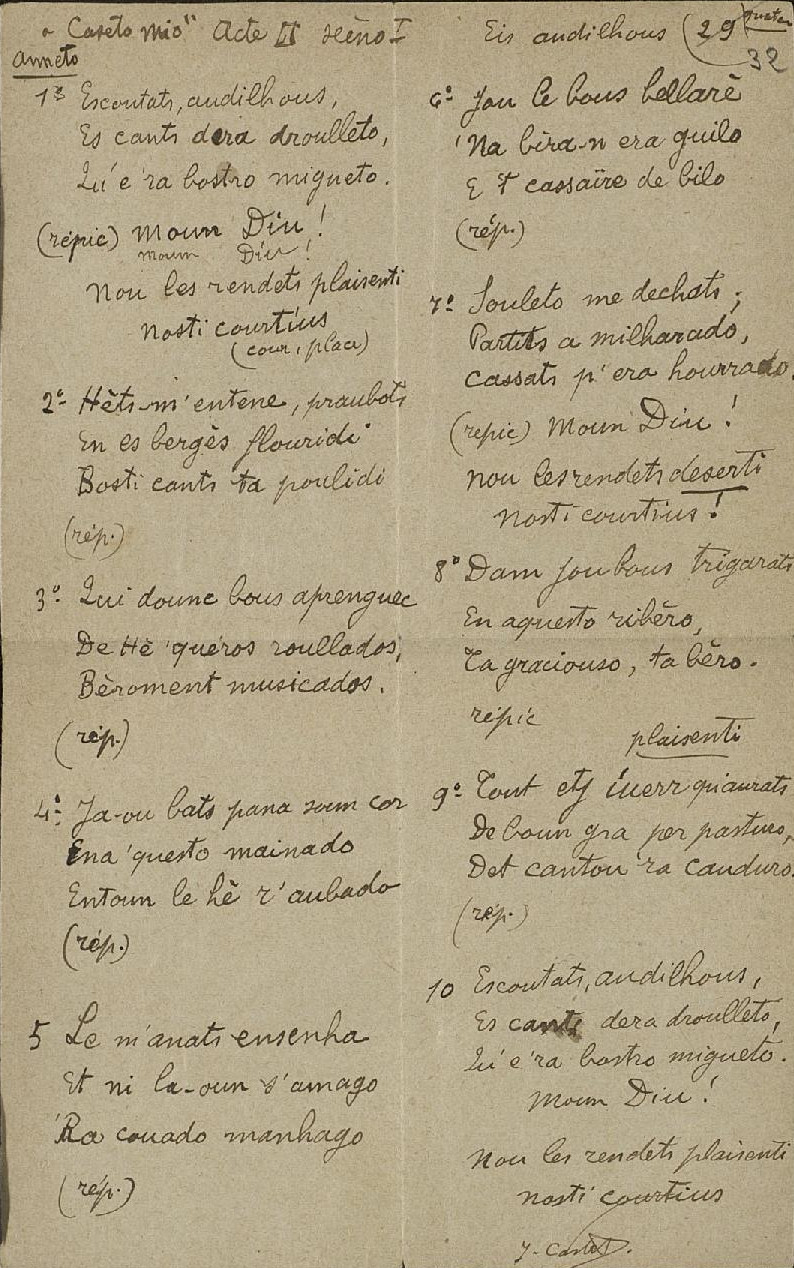 "Caseto mio" Acte II scèno I
Anneto
1º Escoutats, audilhous,
Es cants dera droulleto,
Qu'e 'ra bostro migueto.
(répic) Moun Diu !
moun Diu !
Nou les rendets plaisenti
nosti courtius
(cour, place)
2º Hèts-m'entene, praubots
En es bergès flouridi
Bosti cants ta poulidi
(rép.)
3º Qui dounc bous aprenguec
De Hè 'queros roullados,
Bèroment musicados.
(rép.)
4º Ja-ou bats pana soun cor
Ena 'questo mainado
Entoun le hè r'aubado
(rép.)
5 Le m'anats ensenha
Et ni la-oun s'amago
'Ra couado manhago
(rép.)
Eis audilhous (29 quater
32
6º Jou le bous bellarè
'Na bira-n era guilo
E t cassaïre de bilo
(rép.)
7º Souleto me dechats ;
Partits a milharado,
Cassats p'era hourrado.
(repic) Moun Diu !
nou les rendets deserti
nosti courtius !
8º Dam jou bous trigarats
En aquesto ribèro,
Ta graciouso, ta bèro.
répic
plaisenti
9º Tout etj iuerr quiaurats
De boun gra per pasturo,
Det cantou 'ra cauduro.
(rép.)
10 Escoutats, audilhous,
Es cants dera droulleto,
Qu'e 'ra bostro migueto.
Moun Diu !
Nou les rendets plaisenti
nosti courtius